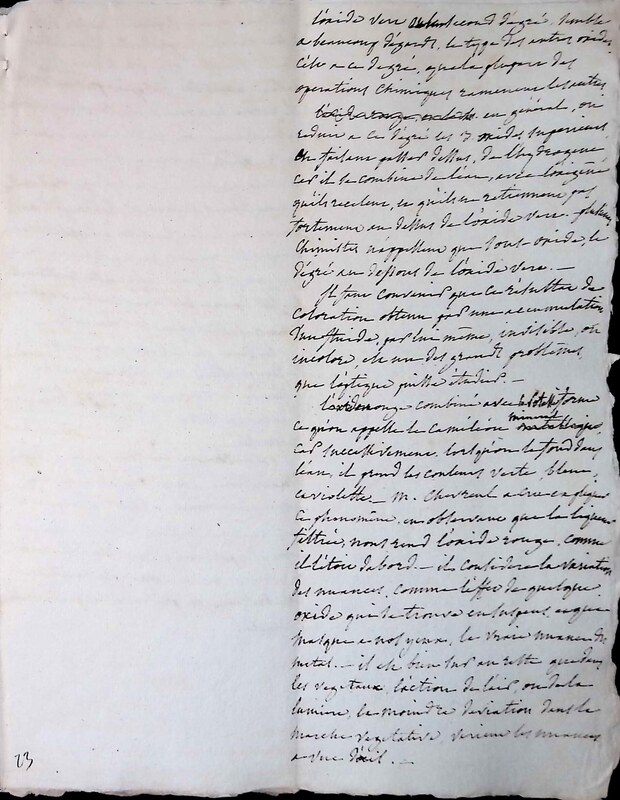 l'oxide vert ou le second degré, semble
a beaucoup d'égards, le type des autres oxides
c'est a ce degré, que la plupart des
operations chimiques ramenent les autres
en général, on
reduit a ce degré les 3 oxides superieurs
en faisant passer dessus, de l'hydrogene
car il se combine de l'eau, avec l'oxigène
qu'ils recelent, et qu'ils ne retiennent pas
fortement au dessus de l'oxide vert. plusieurs
chimistes n'appellent que sous oxide, le
dégré au dessous de l'oxide vert. —
Il faut convenir que ce resultat de
coloration obtenu par une accumulation
d'un fluide, par lui même, invisible, ou
incolore, est un des grands problêmes,
que l'optique puisse étudier. —
l'oxide rouge combiné avec la potasse forme
ce qu'on appelle le cameleon minéral
car successivement, lorsqu'on le fond dans
l'eau, il prend les couleurs verte, bleue,
et violette — M. Chevreul a cru expliquer
ce phenomêne, en observant que la liqueur
filtrée, nous rend l'oxide rouge, comme
il l'etoit d'abord. — il considere la variation
des nuances, comme l'effet de quelque
oxide qui se trouve en suspens, et que
masque a nos yeux, la vraie nuance du
metal. — il est bien sur au reste que dans
les vegetaux, l'action de l'air, ou de la
lumiere, la moindre deviation dans la
marche vegetative varient les nuances
a vue d'œil. —
23